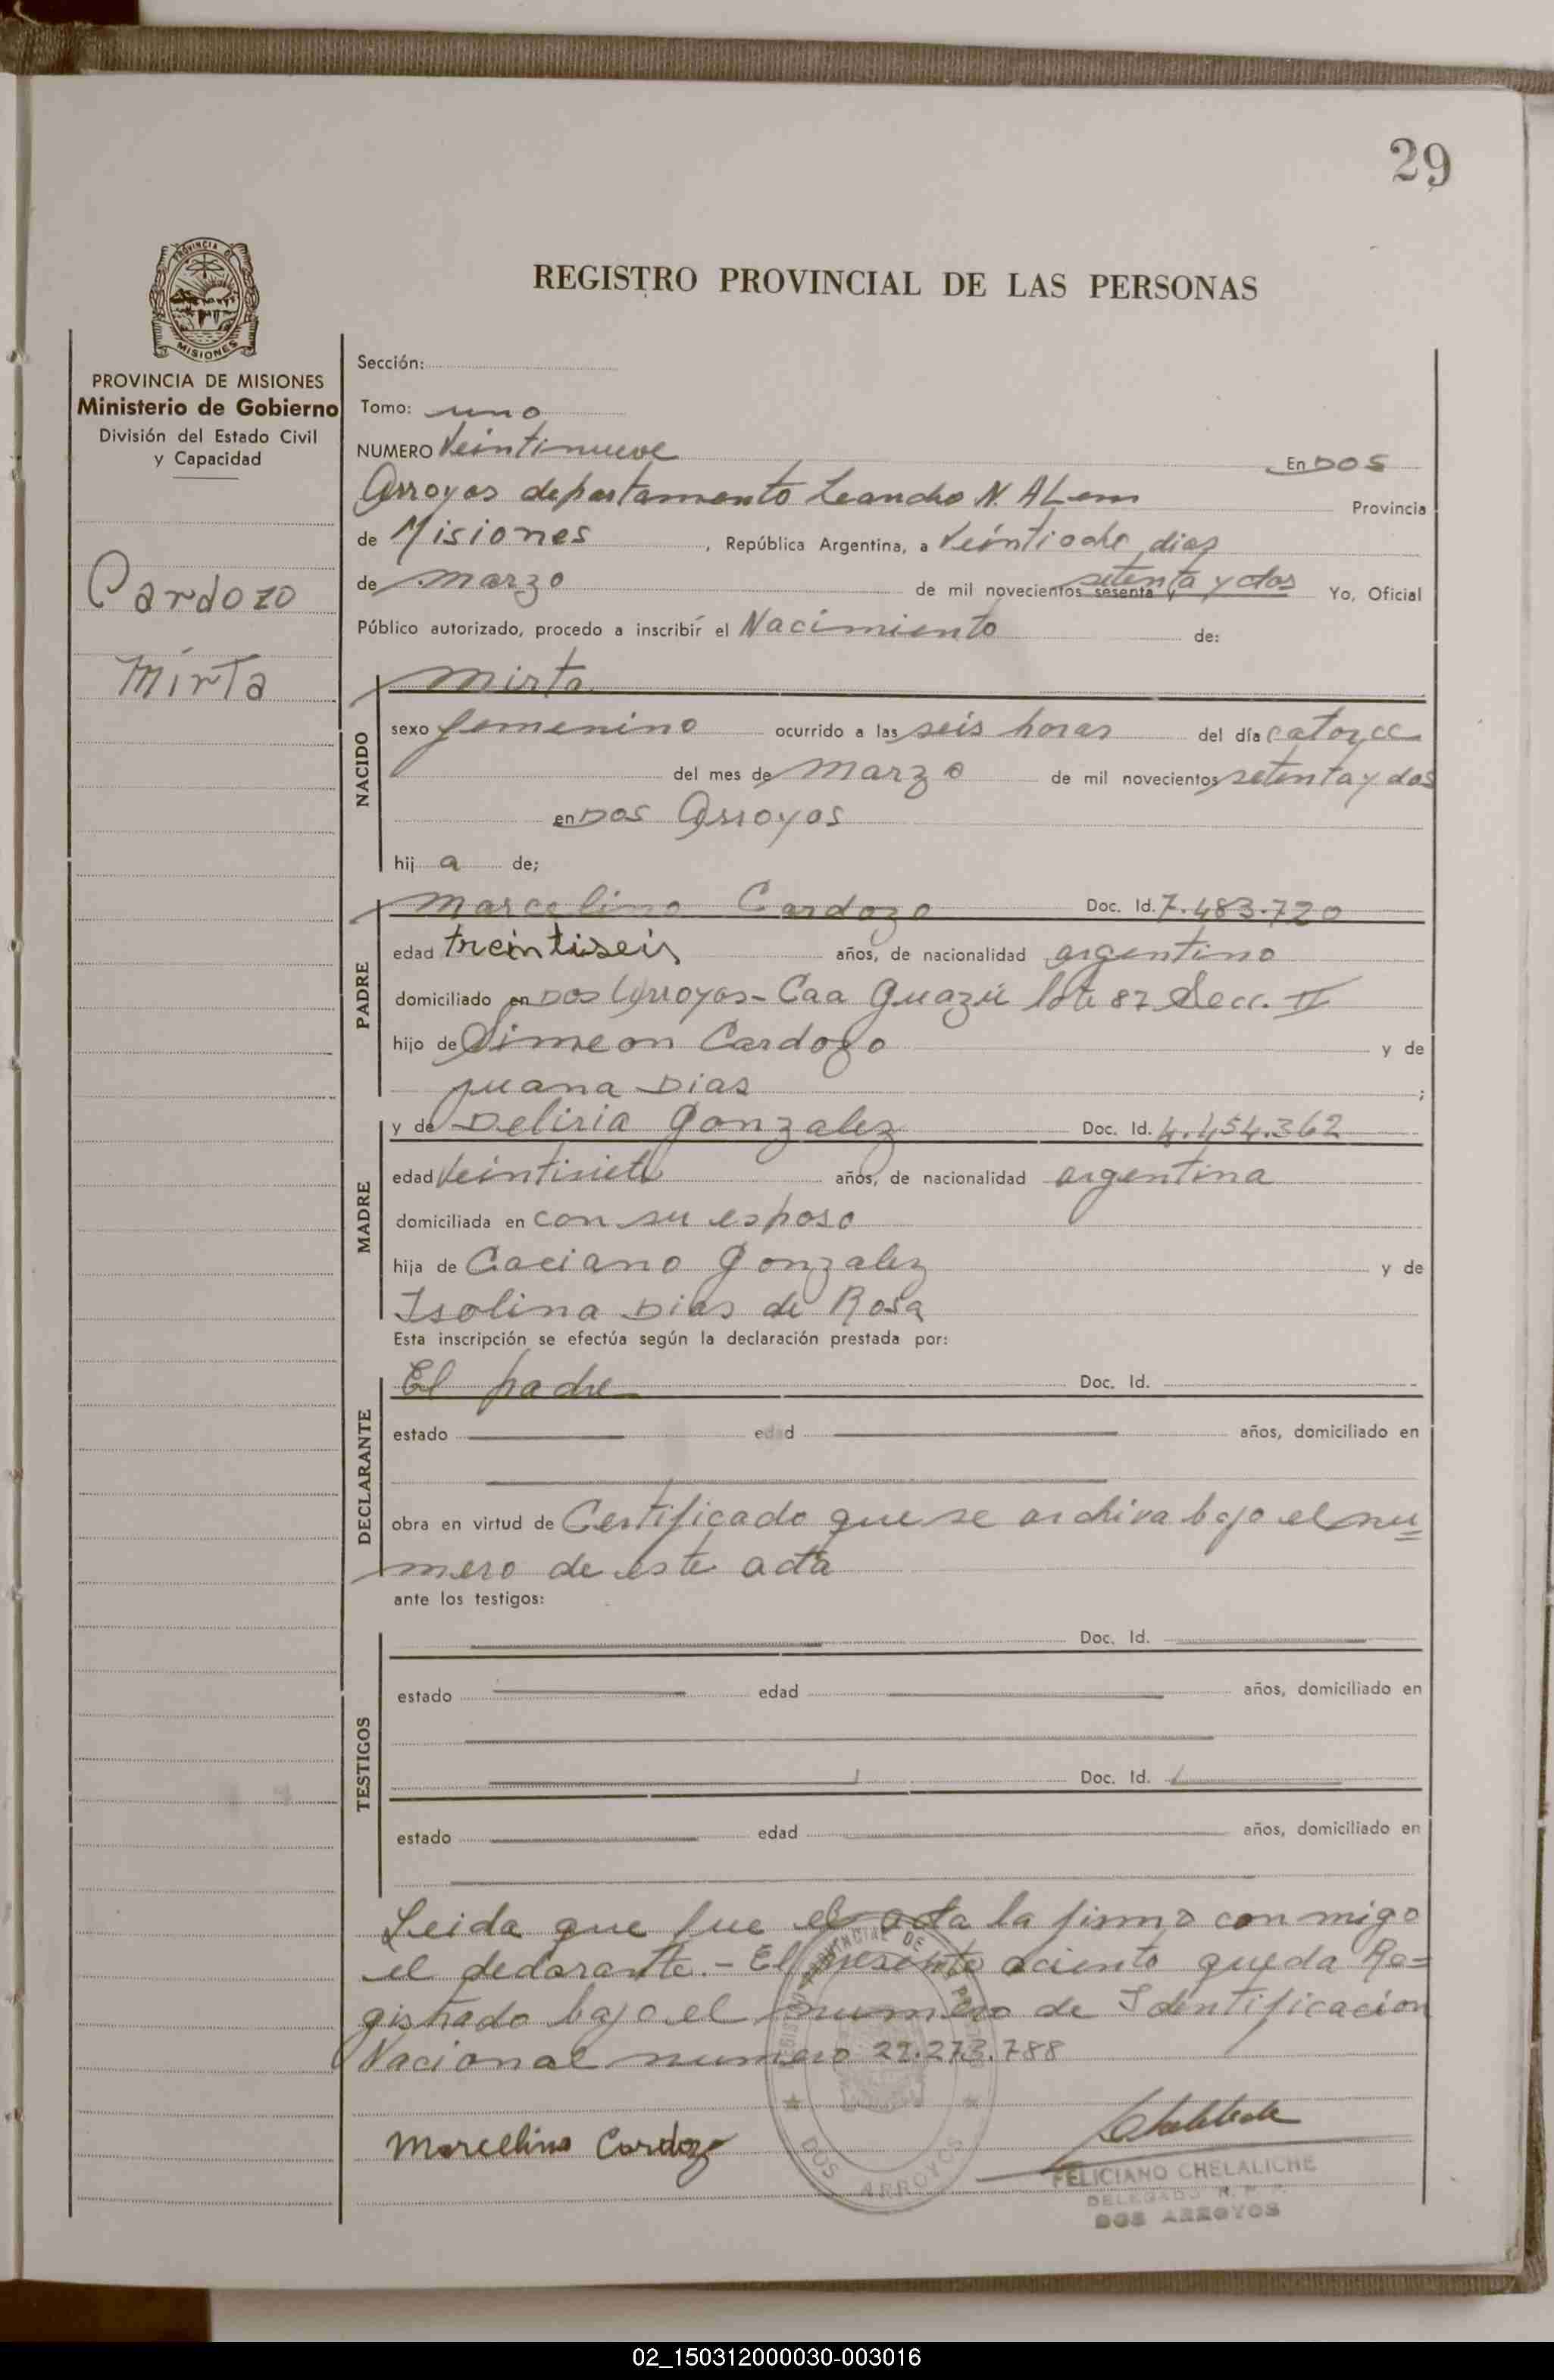 29
PROVINCIA DE
MISIONES
REGISTRO PROVINCIAL DE LAS PERSONAS
PROVINCIA DE MISIONES
Ministerio de Gobierno
División del Estado Civil
y Capacidad
Cardozo
Mirta
Sección:
Tomo: uno
NUMERO Veintinueve En DOS
Arroyos departamento Leandro N. ALem Provincia
de Misiones, República Argentina, a Veintiocho dias
de marzo de mil novecientos sesenta setenta y dos Yo, Oficial
Público autorizado, procedo a inscribir el Nacimiento de:
NACIDO
Mirta
sexo femenino ocurrido a las seis horas del día catorce
del mes de Marzo de mil novecientos setenta y dos
en Dos Arroyos
hij a de;
PADRE
Marcelino Cardozo Doc. Id. 7.483.720
edad treintiseis años, de nacionalidad argentino
domiciliado en Dos Arroyos - Caa Guazú lote 87 Secc. II
hijo de Simeon Cardozo y de
Juana Dias;
MADRE
y de Deliria Gonzalez Doc. Id. 4.454.362
edad Veintisiete años, de nacionalidad argentina
domiciliada en con su esposo
hija de Caciano Gonzalez y de
Isolina Dias de Rosa
Esta inscripción se efectúa según la declaración prestada por:
DECLARANTE
El padre Doc. Id.
estado edad años, domiciliado en
obra en virtud de Certificado que se archiva bajo el nu=
mero de este acta
ante los testigos:
TESTIGOS
Doc. Id.
estado edad años, domiciliado en
Doc. Id.
estado edad años, domiciliado en
Leida que fue el acta la firma con migo
el declarante.- El presente aciento queda Re=
gistrado bajo el numero de Identificacion
Nacional numero 22.273.788
Marcelino Cardozo
DOS ARROYOS
FELICIANO CHELALICHE
DELEGADO R. P. P.
DOS ARROYOS
02_150312000030-003016